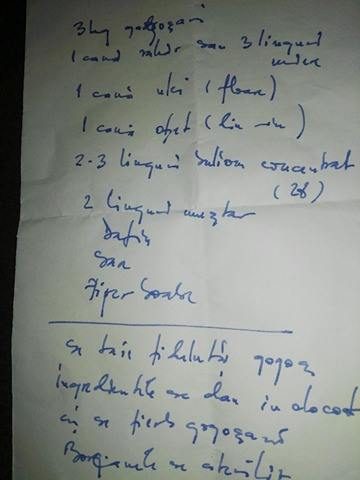 3 kg gogoșari
1 cană zahăr sau 3 linguri
miere
1 cană ulei (floare)
1 cană oțet (din vin)
2-3 linguri bulion concentrat
(28)
2 linguri muștar
Dafin
Sare
Piper boabe
se taie gogoș
ingredientele se dau în clocot
și se fierb gogoșarii
se